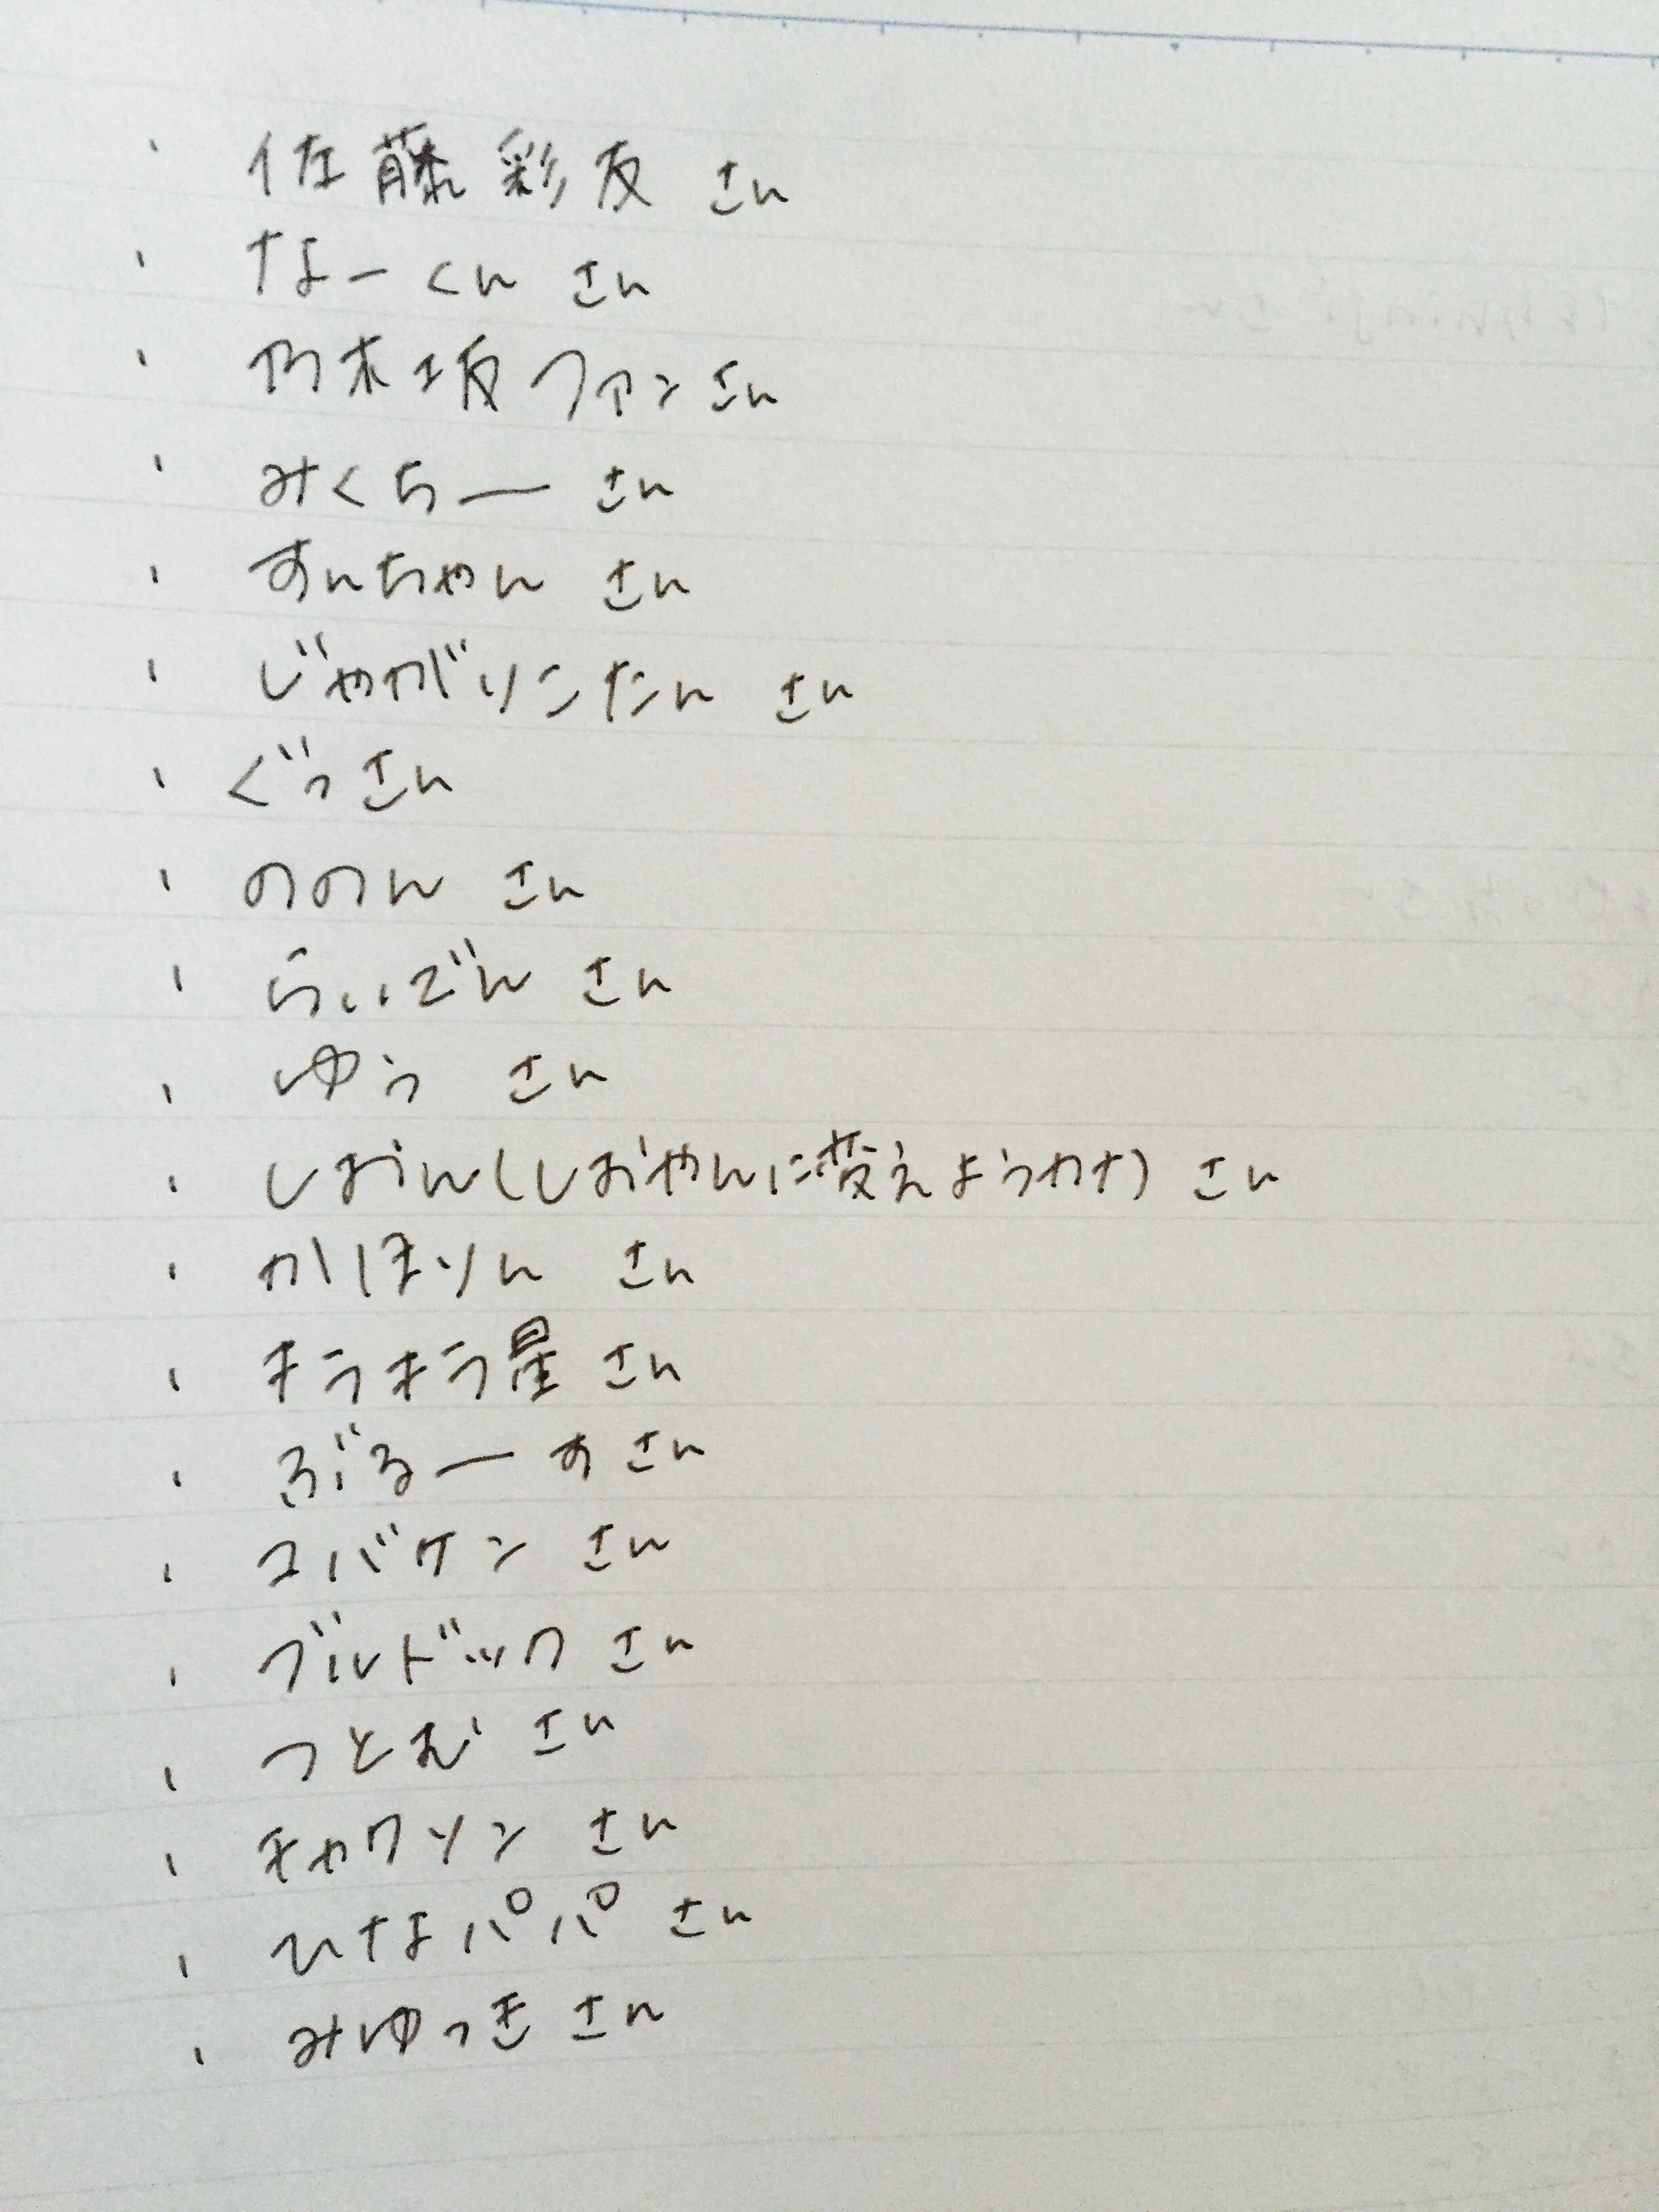 ・佐藤彩友 さん
・なーくん さん
・乃木坂ファン さん
・みくちー さん
・すんちゃん さん
・じゃがりこたん さん
・ぐっさん
・ののん さん
・らいでん さん
・ゆう さん
・しおん(しおやんに変えようかな) さん
・かほりん さん
・キラキラ星 さん
・ぶるーす さん
・コバケン さん
・ブルドック さん
・つとむ さん
・チャクソン さん
・ひなパパ さん
・みゆっき さん